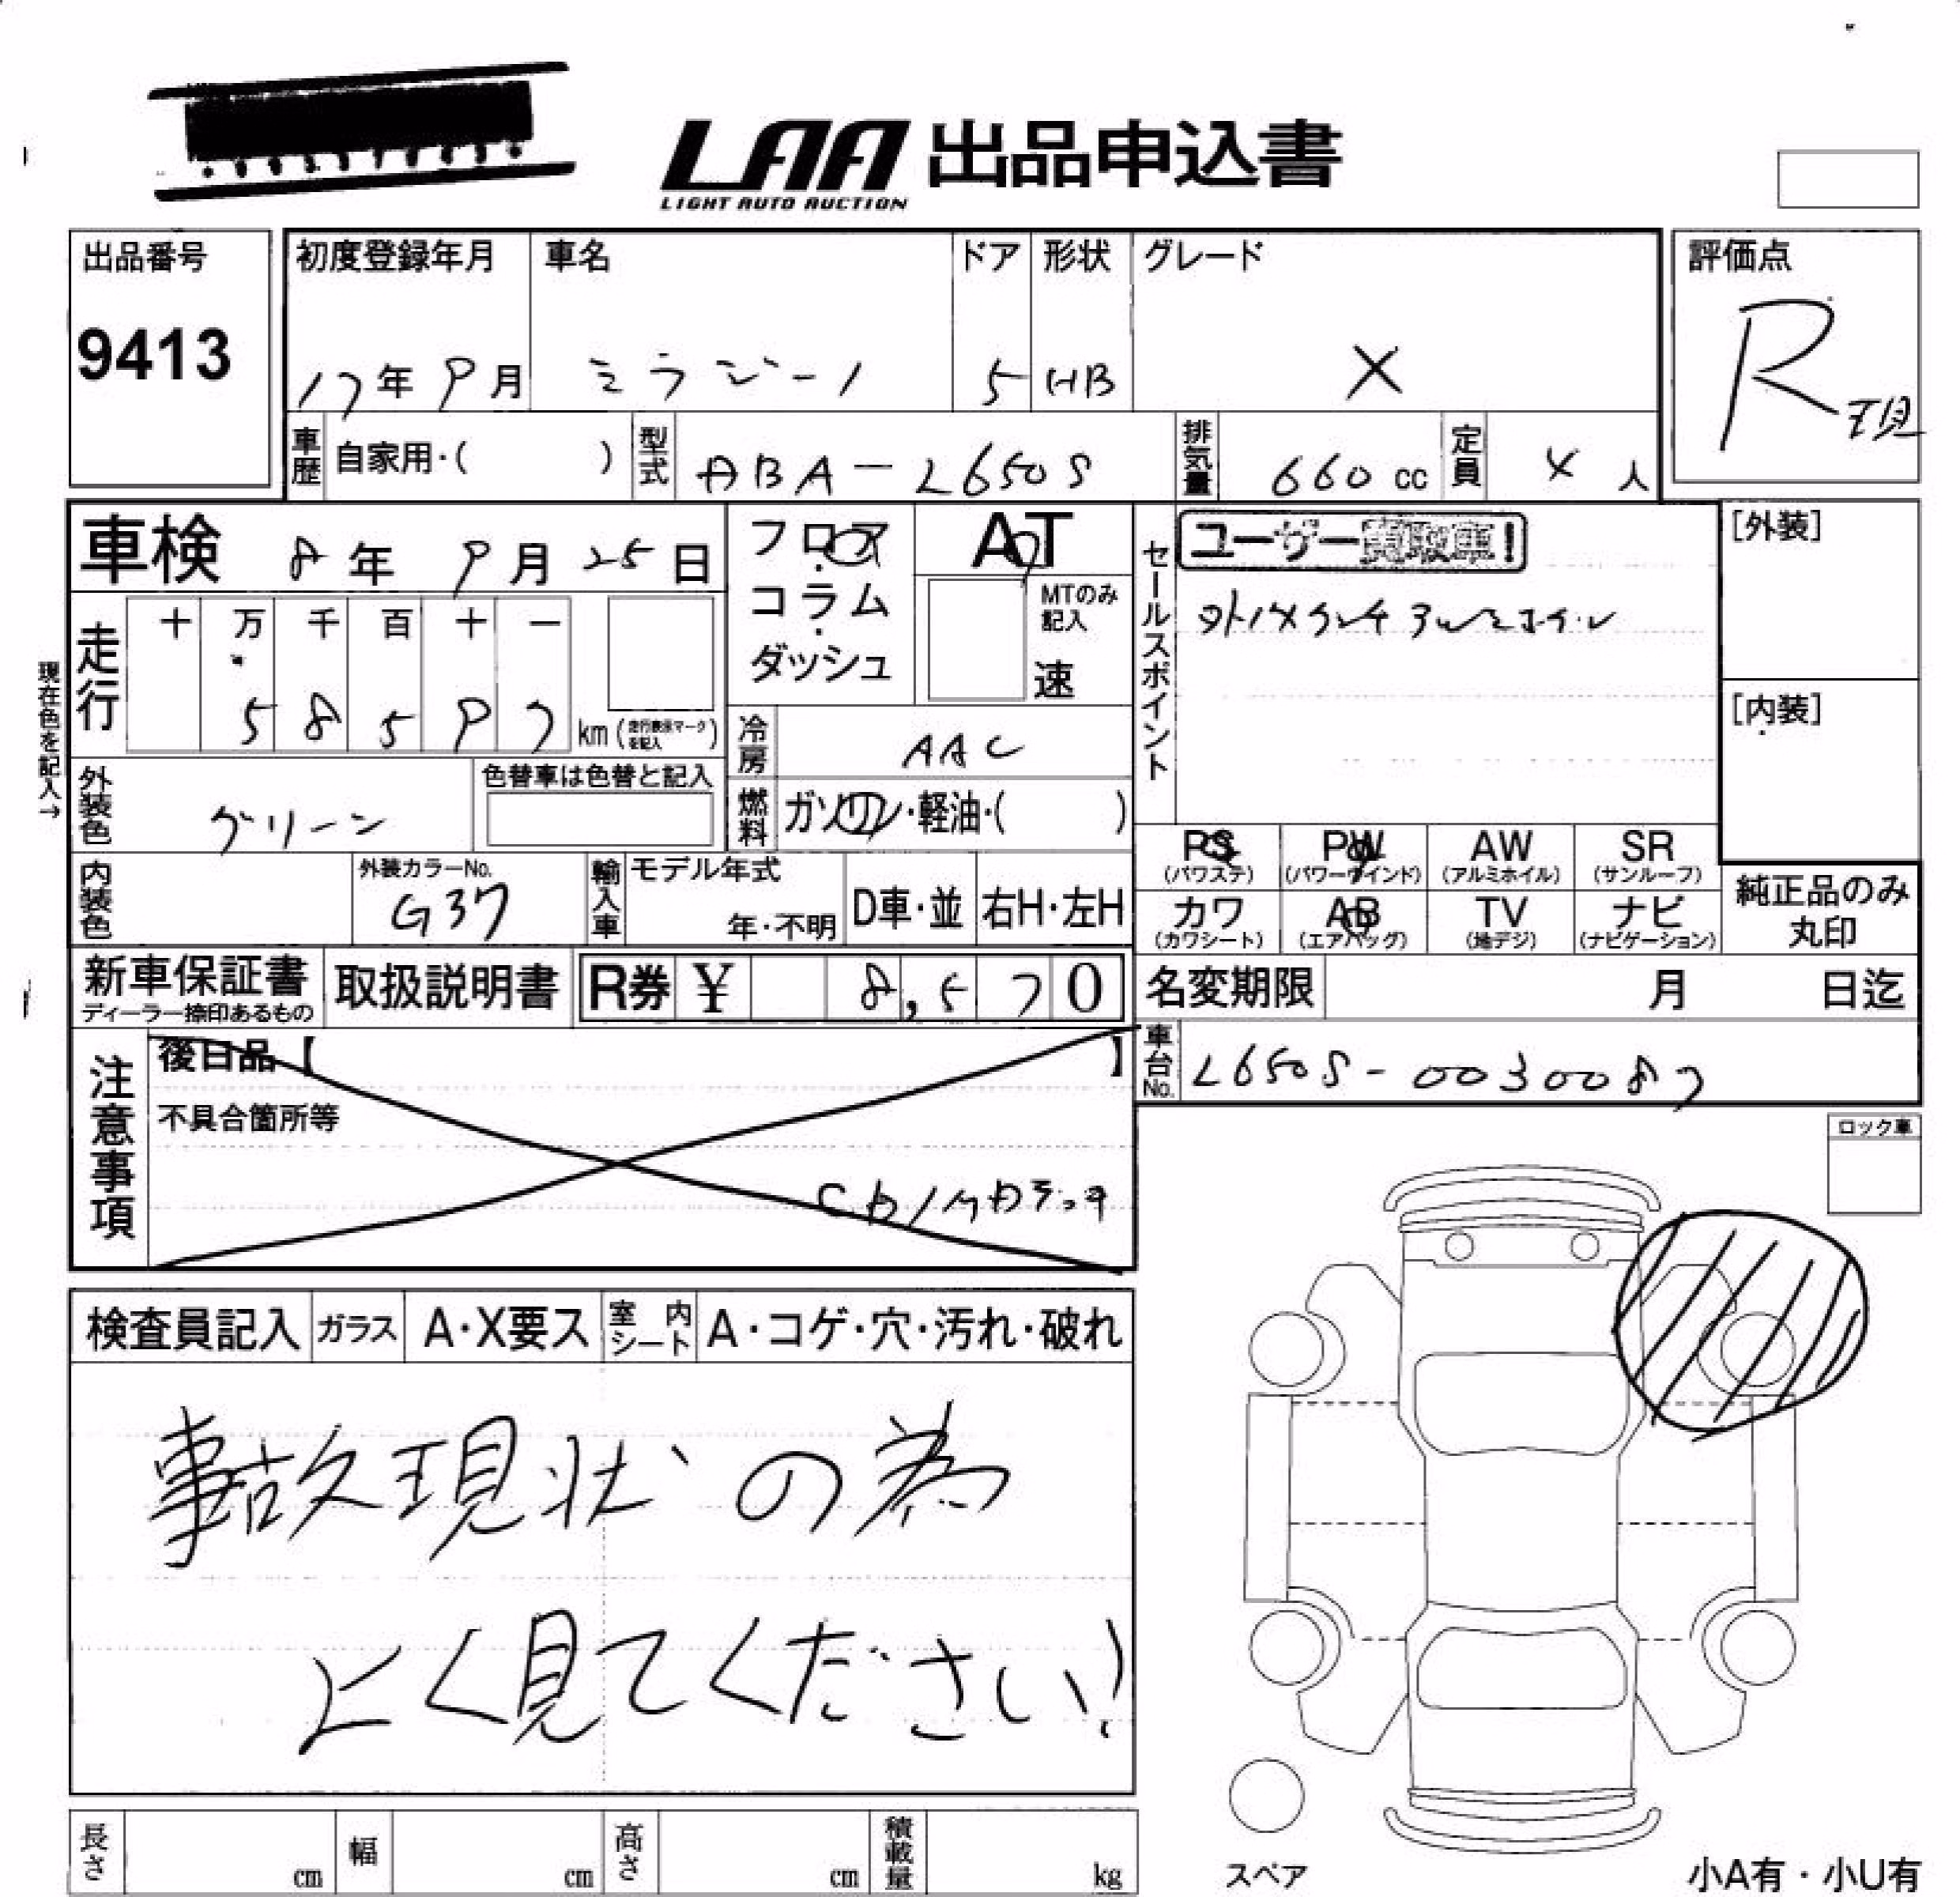 LAA 出品申込書
LIGHT AUTO AUCTION
出品番号
9413
初度登録年月
17年 9月
車名
ミラジーノ
ドア
5
形状
HB
グレード
X
評価点
R 現
車歴
自家用・( )
型式
ABA-L650S
排気量
660 cc
定員
4 人
車検 8年 9月 25日
フロア
・
コラム
・
ダッシュ
AT
MTのみ
記入
速
セールスポイント
ユーザー買取車!
[外装]
[内装]
現在色を記入→
走行
十 万 千 百 十 一
5 8 5 9 7
km (走行表示マークを記入)
冷房
AAC
外装色
グリーン
色替車は色替と記入
燃料
ガソリン・軽油・( )
内装色
外装カラーNo.
G37
輸入車
モデル年式
年・不明
D車・並
右H・左H
PS
(パワステ)
PW
(パワーウインド)
AW
(アルミホイル)
SR
(サンルーフ)
カワ
(カワシート)
AB
(エアバッグ)
TV
(地デジ)
ナビ
(ナビゲーション)
純正品のみ
丸印
新車保証書
ディーラー捺印あるもの
取扱説明書
R券 ¥ 8,570
名変期限 月 日迄
車台No.
L650S-0030087
注意事項
後日品【 】
不具合箇所等
CD/MDデッキ
ロック車
検査員記入
ガラス
A・X要ス
室内シート
A・コゲ・穴・汚れ・破れ
事故現状の為
よく見てください!
長さ cm
幅 cm
高さ cm
積載量 kg
スペア
小A有・小U有